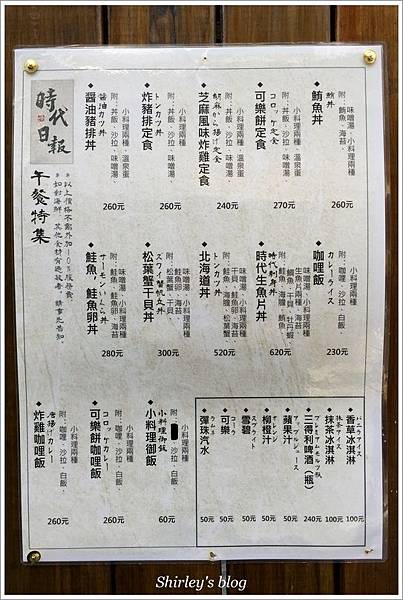 時代
日報
午餐特集
＊以上價格不需外加10%服務費
＊如對海鮮、其他食材有過敏者，請事先告知
鮪魚丼
鮪丼
附：鮪魚、海苔
味噌湯、小料理兩種
260元
可樂餅定食
コロッケ定食
附：丼飯、沙拉、味噌湯
小料理兩種、溫泉蛋
270元
芝麻風味炸雞定食
胡麻から揚げ定食
附：丼飯、沙拉、味噌湯
小料理兩種
240元
炸豬排定食
トンカツ丼
附：丼飯、沙拉、味噌湯
小料理兩種、溫泉蛋
260元
醬油豬排丼
醤油カツ丼
附：丼飯、沙拉、味噌湯
小料理兩種
260元
咖哩飯
カレーライス
附：咖哩、沙拉、白飯
小料理兩種
230元
時代生魚片丼
時代刺身丼
620元
北海道丼
トンカツ丼
520元
松葉蟹干貝丼
ズワイ蟹帆立丼
300元
鮭魚，鮭魚卵丼
サーモンいくら丼
附：鮭魚、鮭魚卵、海苔
味噌湯、小料理兩種
280元
香草冰淇淋
バニラアイス
100元
抹茶冰淇淋
抹茶アイス
100元
三得利啤酒（瓶）
240元
蘋果汁
アップルジュース
50元
柳橙汁
50元
雪碧
スプライト
50元
可樂
コーラ
50元
彈珠汽水
ラムネ
50元
小料理御飯
小料理御飯
附：沙拉、白飯
小料理兩種
60元
可樂餅咖哩飯
コロッケカレー
附：咖哩、沙拉、白飯、
小料理兩種
260元
炸雞咖哩飯
唐揚げカレー
附：咖哩、沙拉、白飯、
小料理兩種
260元
Shirley's blog